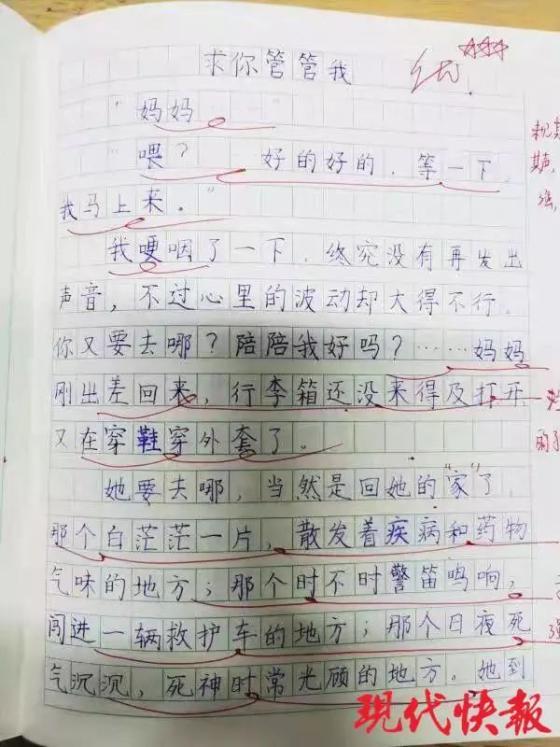 求你管管我
优
"妈妈
"喂？ 好的好的，等一下，
我马上来。"
我哽咽了一下，终究没有再发出
声音，不过心里的波动却大得不行。
你又要去哪？陪陪我好吗？……妈妈
刚出差回来，行李箱还没来得及打开
又在穿鞋穿外套了。
她要去哪，当然是回她的"家"了，
那个白茫茫一片，散发着疾病和药物
气味的地方；那个时不时警笛鸣响，
闯进一辆救护车的地方；那个日夜死
气沉沉，死神时常光顾的地方。她到
现代快報